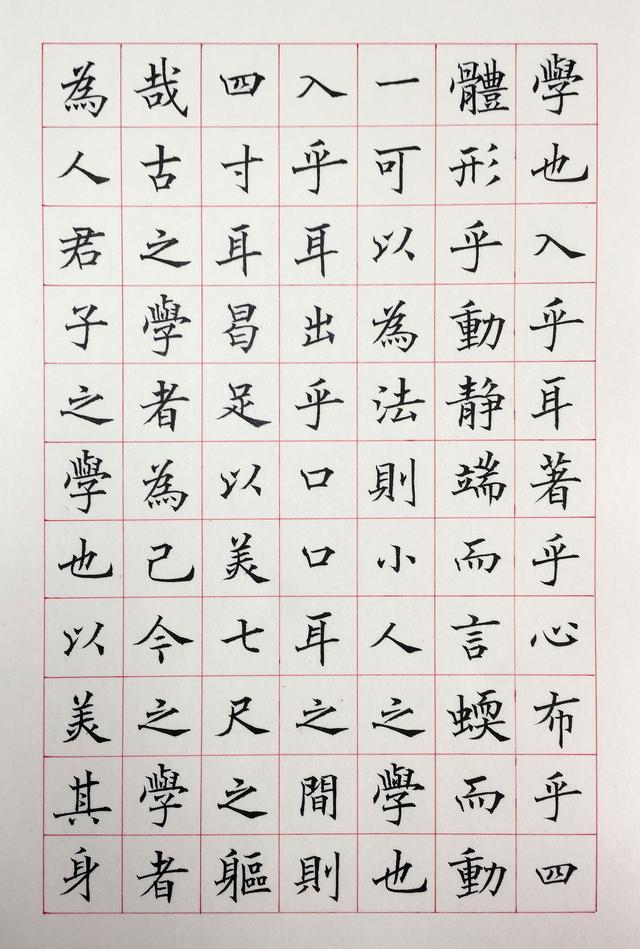 學也入乎耳著乎心布乎四
體形乎動静端而言蝡而動
一可以為法則小人之學也
入乎耳出乎口口耳之間則
四寸耳曷足以美七尺之軀
哉古之學者為己今之學者
為人君子之學也以美其身